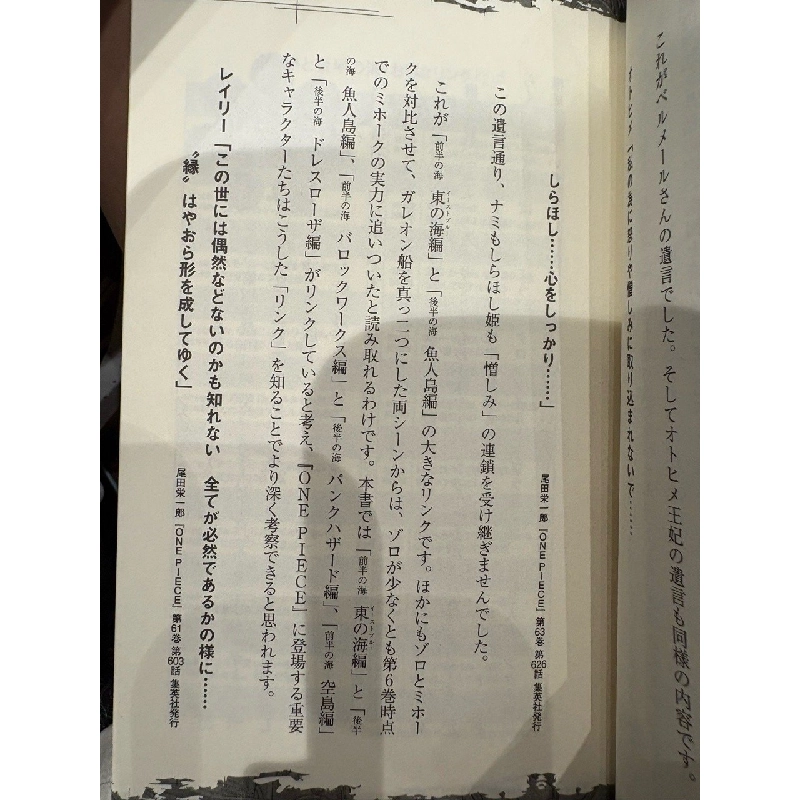 これがベルメールさんの遺言でした。そしてオトヒメ王妃の遺言も同様の内容です。
しらほし……心をしっかり……」
尾田栄一郎『ONE PIECE』第63巻 第626話 集英社発行
この遺言通り、ナミもしらほし姫も「憎しみ」の連鎖を受け継ぎませんでした。
これが「前半の海 東の海編」と「後半の海 魚人島編」の大きなリンクです。ほかにもゾロとミホー
クを対比させて、ガレオン船を真っ二つにした両シーンからは、ゾロが少なくとも第6巻時点
でのミホークの実力に追いついたと読み取れるわけです。本書では「前半の海 東の海編」と「後半
の海 魚人島編」、「前半の海 バロックワークス編」と「後半の海 パンクハザード編」、「前半の海 空島編」
と「後半の海 ドレスローザ編」がリンクしていると考え、『ONE PIECE』に登場する重要
なキャラクターたちはこうした「リンク」を知ることでより深く考察できると思われます。
レイリー「この世には偶然などないのかも知れない 全てが必然であるかの様に……
〝縁〟はやおら形を成してゆく」
尾田栄一郎『ONE PIECE』第61巻 第603話 集英社発行